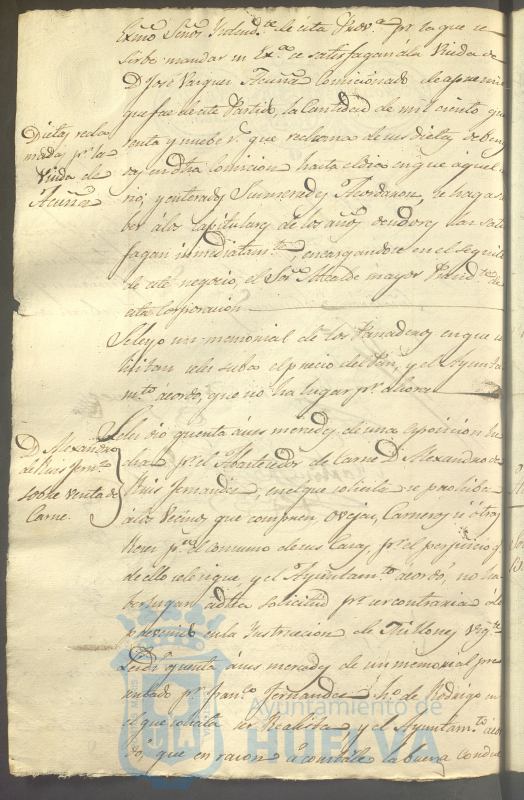 Exmo Señor Yntend.te de esta Prov.a p.r la que se
sirbe mandar su Ex.a se satisfagan ala Viuda de
D. José Vazquez Acuña Comisionado de apremio
que fue de este Partido, la Cantidad de mil ciento qua
renta y nuebe r.s que reclama de sus Dietas deben
gadas en dha Comision hasta el dia en que aquel
y enterados Sus mercedes Acordaron, se haga sa
ber álos Capitulares de los años deudores las satis
fagan inmediatam.te, encargandose en el seguim.to
de este negocio, el Sor Alcalde mayor Presid.te de
esta Corporacion
Dietas recla
madas p.r la
Viuda de
Acuña
Se leyo un memorial de los Panaderos en que so
licitan se les suba el precio del Pan, y el Ayunta
m.to acordó, que no ha lugar p.r ahora
D. Alexandro
de Ruis Fern.z
sobre venta de
Carne.
Se les dio quenta á sus mercedes de una exposicion he
cha p.r el Abastecedor de Carne D. Alexandro de
Ruis Fernandez, en el que solicita se prohiba
álos Vecinos que compren, Ovejas, Carneros ú otras
Reses p.a el consumo de sus Casas, p.r el perjuicio q.e
de ello se le sigue, y el Ayuntam.to acordó, no ha
ber lugar, adha solicitud p.r ser contraria álo
prevenido en la Instruccion de Millones Vig.te
Se dió quenta á sus mercedes de un memorial pre
sentado p.r Fran.co Fernandez h.o de Rodrigo en
el que solicita ser Realista y el Ayuntam.to acor
dó, que en razon á constarle la buena conduc
Ayuntamiento de
HUELVA